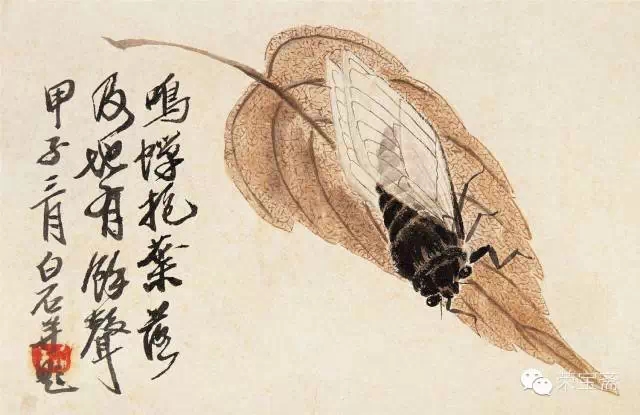 鳴蟬抱葉落
及地有餘聲
甲子三月白石并題
荣宝斋